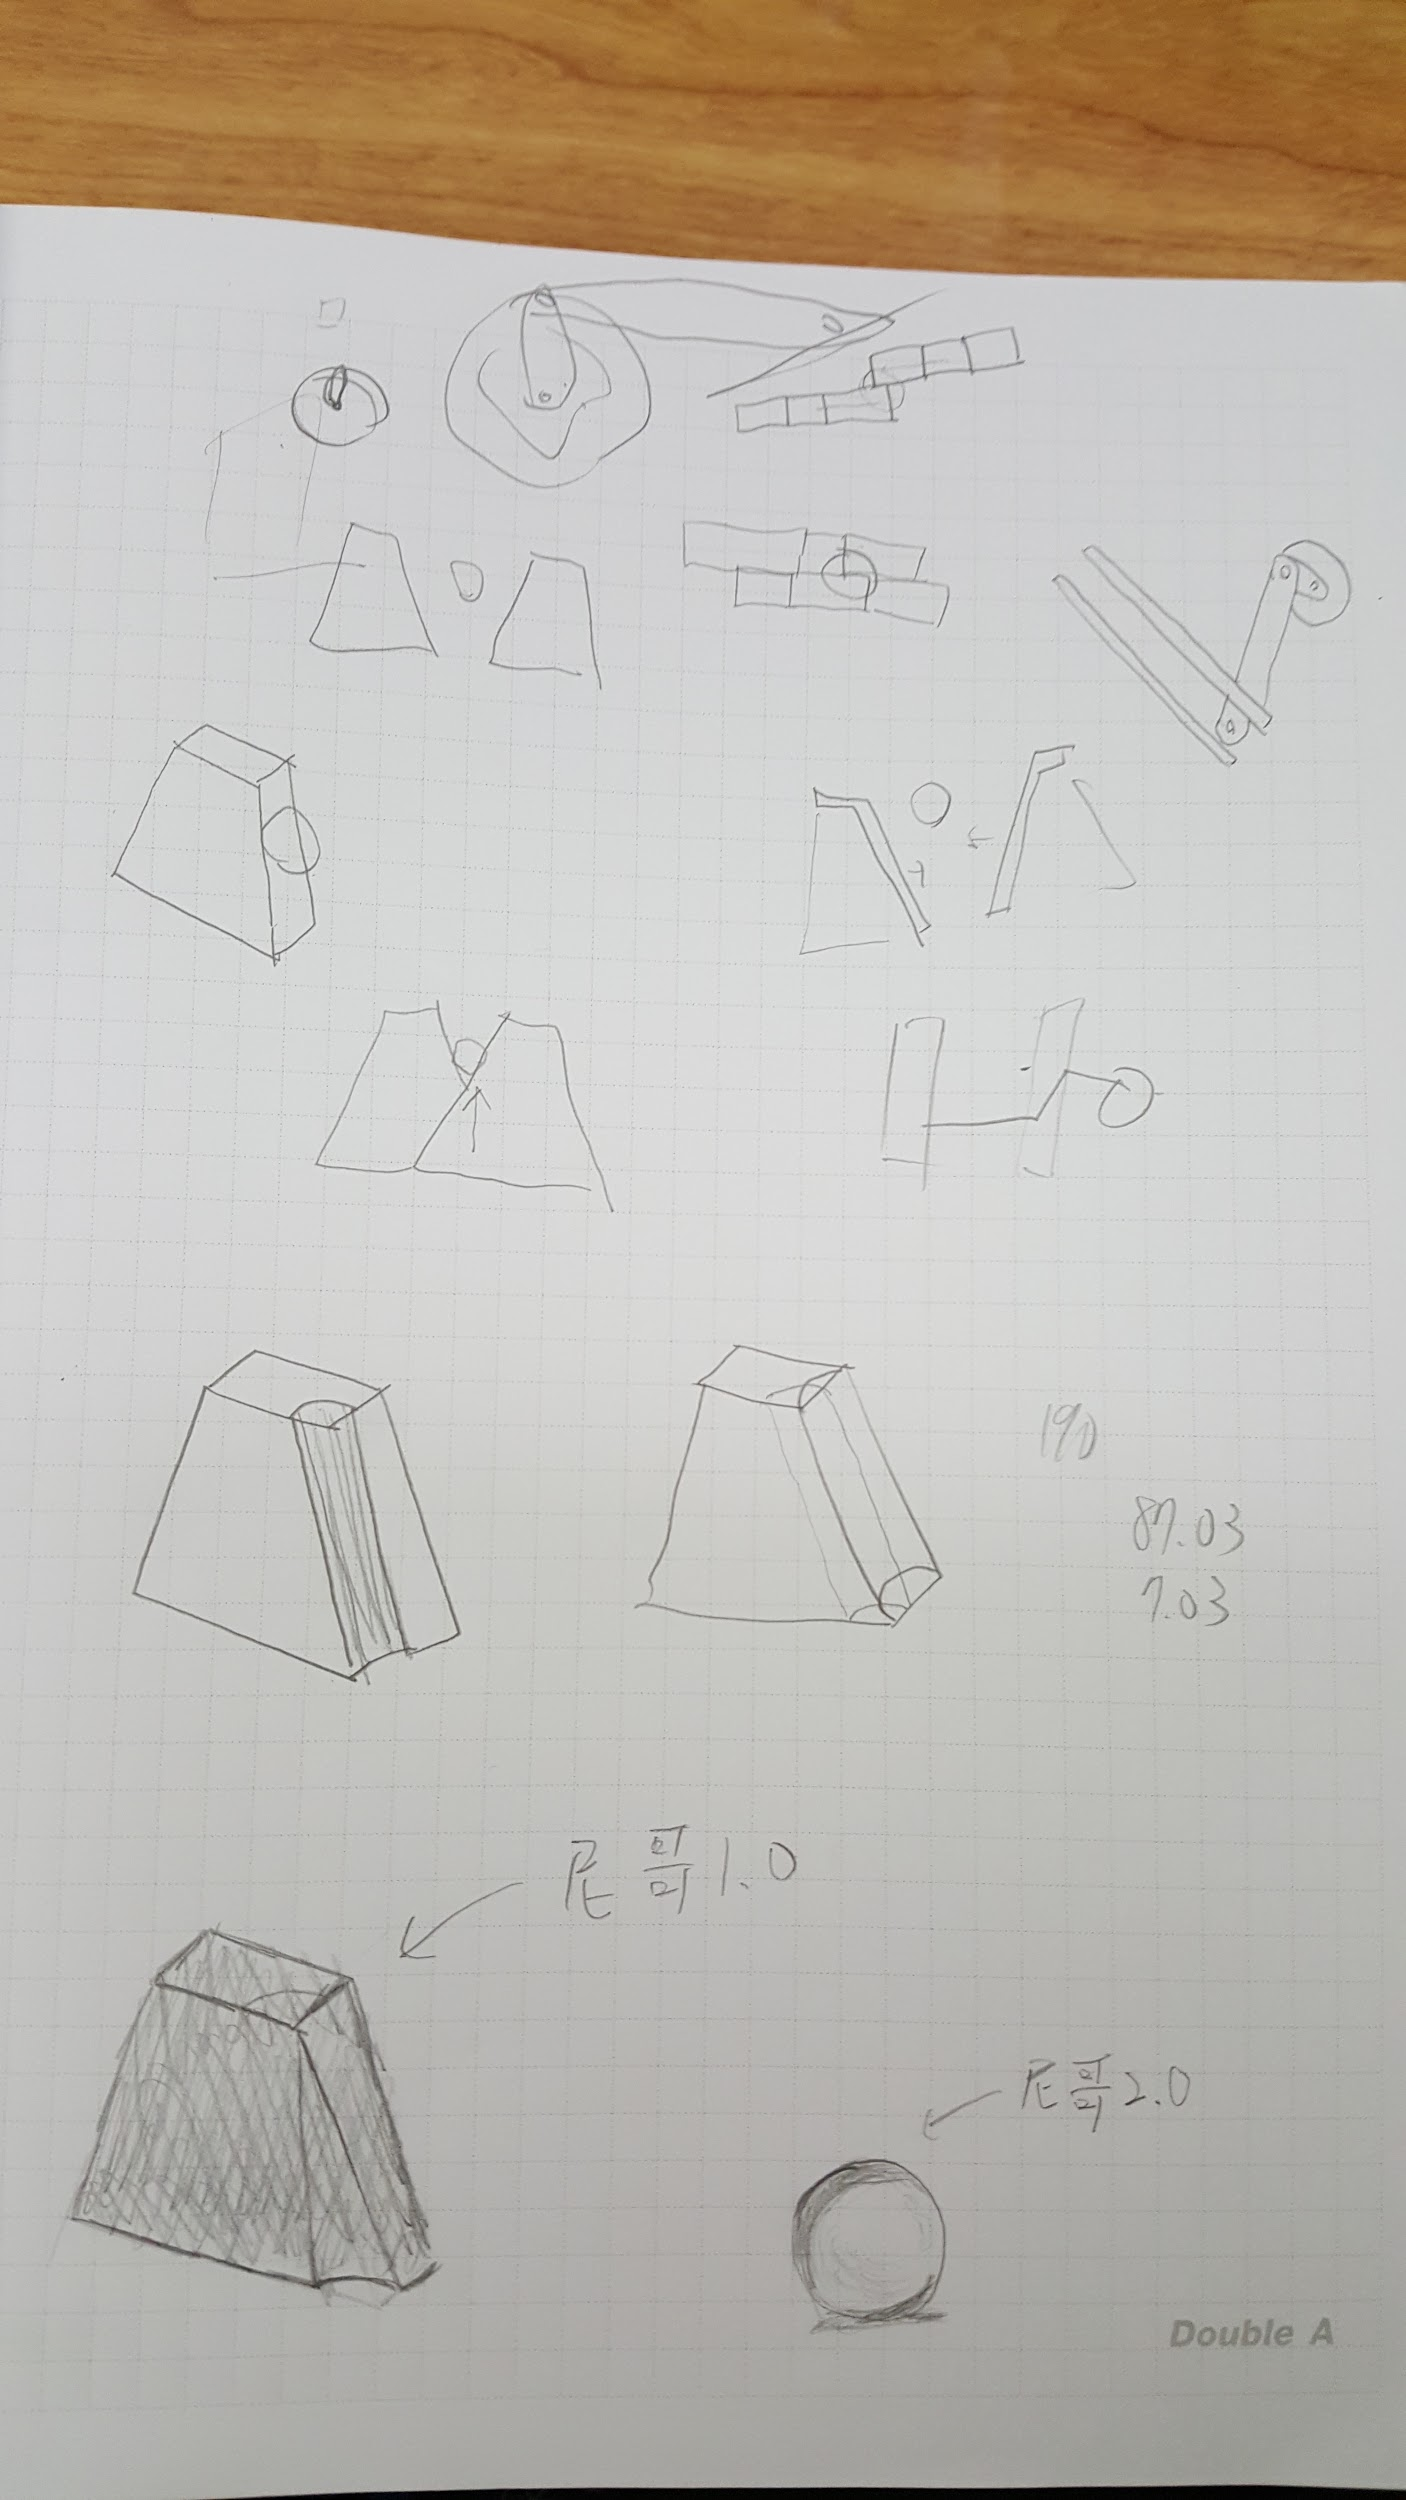 190
87.03
7.03
尼哥1.0
尼哥2.0
Double A